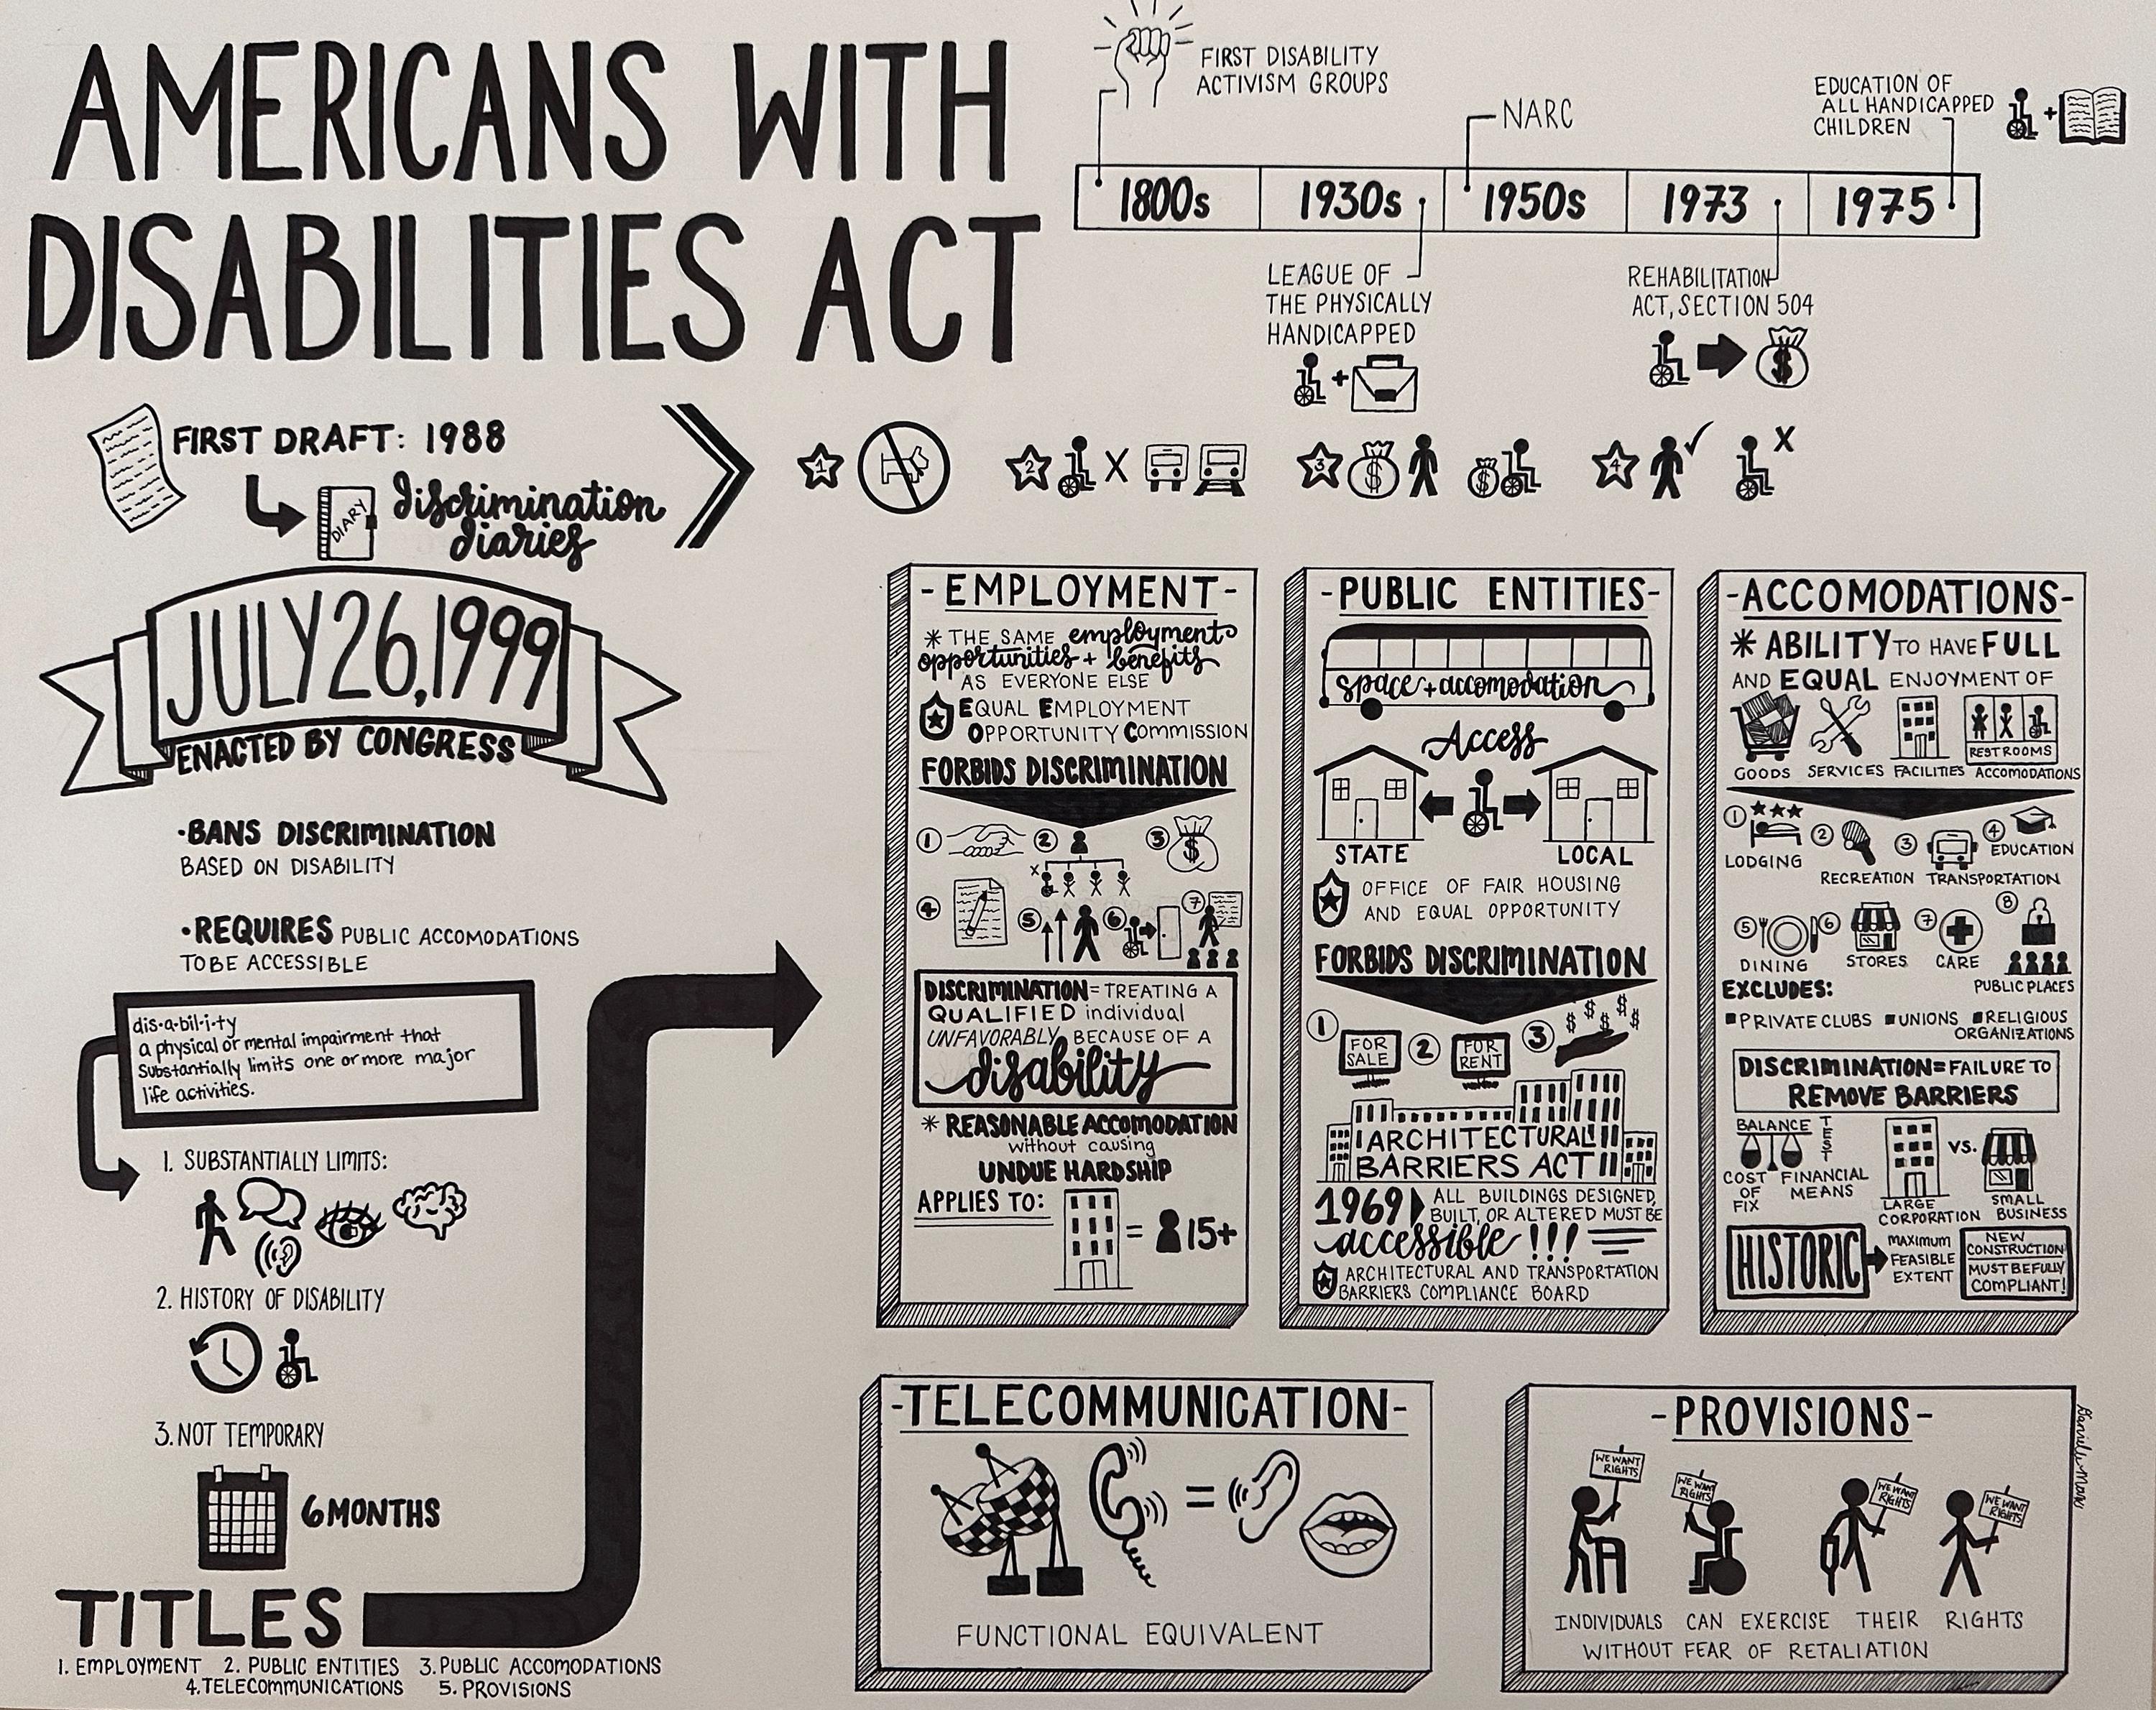 AMERICANS WITH
DISABILITIES ACT
FIRST DISABILITY
ACTIVISM GROUPS
NARC
EDUCATION OF
ALL HANDICAPPED
CHILDREN
1800s 1930s 1950s 1973 1975
LEAGUE OF
THE PHYSICALLY
HANDICAPPED
REHABILITATION
ACT, SECTION 504
$
FIRST DRAFT: 1988
DIARY
discrimination
diaries
1
2 X
3 $ $
4 X
JULY 26, 1999
ENACTED BY CONGRESS
•BANS DISCRIMINATION
BASED ON DISABILITY
•REQUIRES PUBLIC ACCOMODATIONS
TO BE ACCESSIBLE
dis•a•bil•i•ty
a physical or mental impairment that
substantially limits one or more major
life activities.
1. SUBSTANTIALLY LIMITS:
2. HISTORY OF DISABILITY
3. NOT TEMPORARY
6 MONTHS
TITLES
1. EMPLOYMENT 2. PUBLIC ENTITIES 3. PUBLIC ACCOMODATIONS
4. TELECOMMUNICATIONS 5. PROVISIONS
-EMPLOYMENT-
* THE SAME employment
opportunities + benefits
AS EVERYONE ELSE
EQUAL EMPLOYMENT
OPPORTUNITY COMMISSION
FORBIDS DISCRIMINATION
1 2 3 $
X
4 5 6 7
DISCRIMINATION = TREATING A
QUALIFIED individual
UNFAVORABLY BECAUSE OF A
disability
* REASONABLE ACCOMODATION
without causing
UNDUE HARDSHIP
APPLIES TO:
= 15+
-PUBLIC ENTITIES-
space + accomodation
Access
STATE LOCAL
OFFICE OF FAIR HOUSING
AND EQUAL OPPORTUNITY
FORBIDS DISCRIMINATION
1 FOR SALE 2 FOR RENT 3 $ $ $ $ $
ARCHITECTURAL
BARRIERS ACT
1969 ALL BUILDINGS DESIGNED,
BUILT, OR ALTERED MUST BE
accessible!!!
ARCHITECTURAL AND TRANSPORTATION
BARRIERS COMPLIANCE BOARD
-ACCOMODATIONS-
* ABILITY TO HAVE FULL
AND EQUAL ENJOYMENT OF
RESTROOMS
GOODS SERVICES FACILITIES ACCOMODATIONS
1 2 3 4
LODGING RECREATION TRANSPORTATION EDUCATION
5 6 7 8
DINING STORES CARE PUBLIC PLACES
EXCLUDES:
PRIVATE CLUBS UNIONS RELIGIOUS
ORGANIZATIONS
DISCRIMINATION = FAILURE TO
REMOVE BARRIERS
BALANCE TEST
COST OF FIX
FINANCIAL MEANS
VS.
LARGE CORPORATION
SMALL BUSINESS
HISTORIC
MAXIMUM
FEASIBLE
EXTENT
NEW
CONSTRUCTION
MUST BE FULLY
COMPLIANT!
-TELECOMMUNICATION-
=
FUNCTIONAL EQUIVALENT
-PROVISIONS-
WE WANT RIGHTS
WE WANT RIGHTS
WE WANT RIGHTS
WE WANT RIGHTS
INDIVIDUALS CAN EXERCISE THEIR RIGHTS
WITHOUT FEAR OF RETALIATION